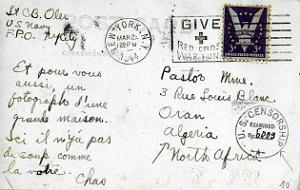 Lt C.B. Oler
U.S. Navy
F.P.O.
POSTCARD
NEW YORK, N.Y.
MAR 2
PM
1944
GIVE
RED CROSS
WAR FUND
3¢ 3¢
Et pour vous
aussi, un
fotografs d'une
grande maison.
Ici il n'y a pas
de coup comme
la votre.
Chas
Pastor Mme.
3 Rue Louis Blanc
Oran
Algeria
North Africa
U.S. CENSORSHIP
EXAMINED
By 6009
10